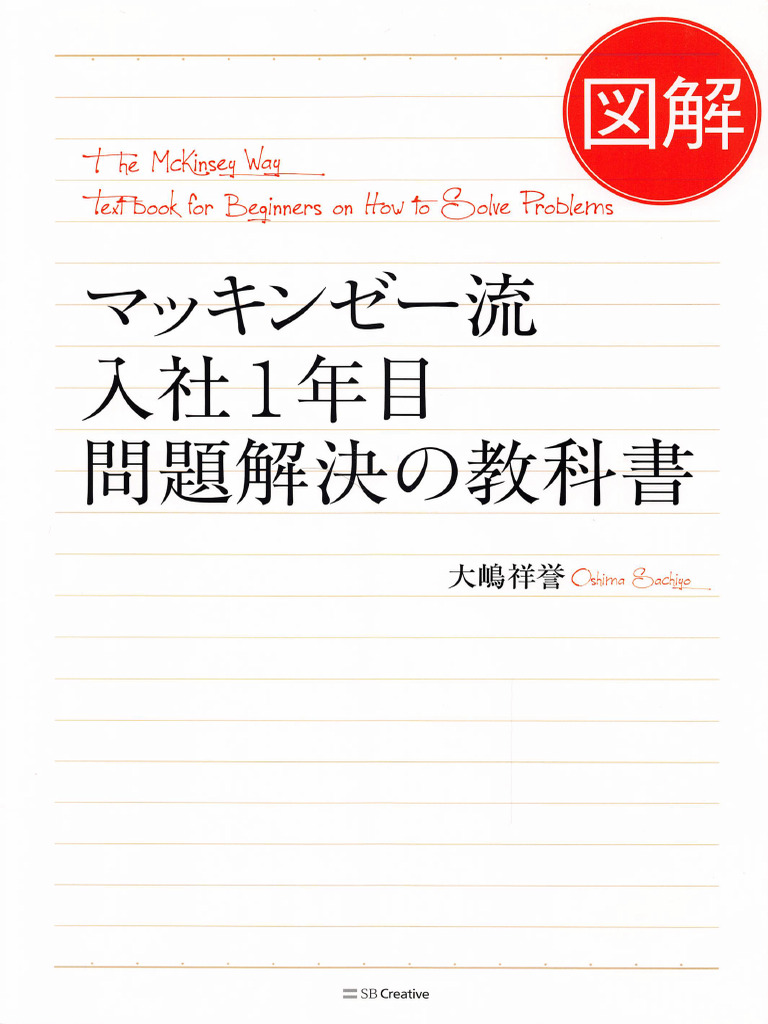 図解
The McKinsey Way
Textbook for Beginners on How to Solve Problems
マッキンゼー流
入社1年目
問題解決の教科書
大嶋祥誉 Oshima Sachiyo
SB Creative